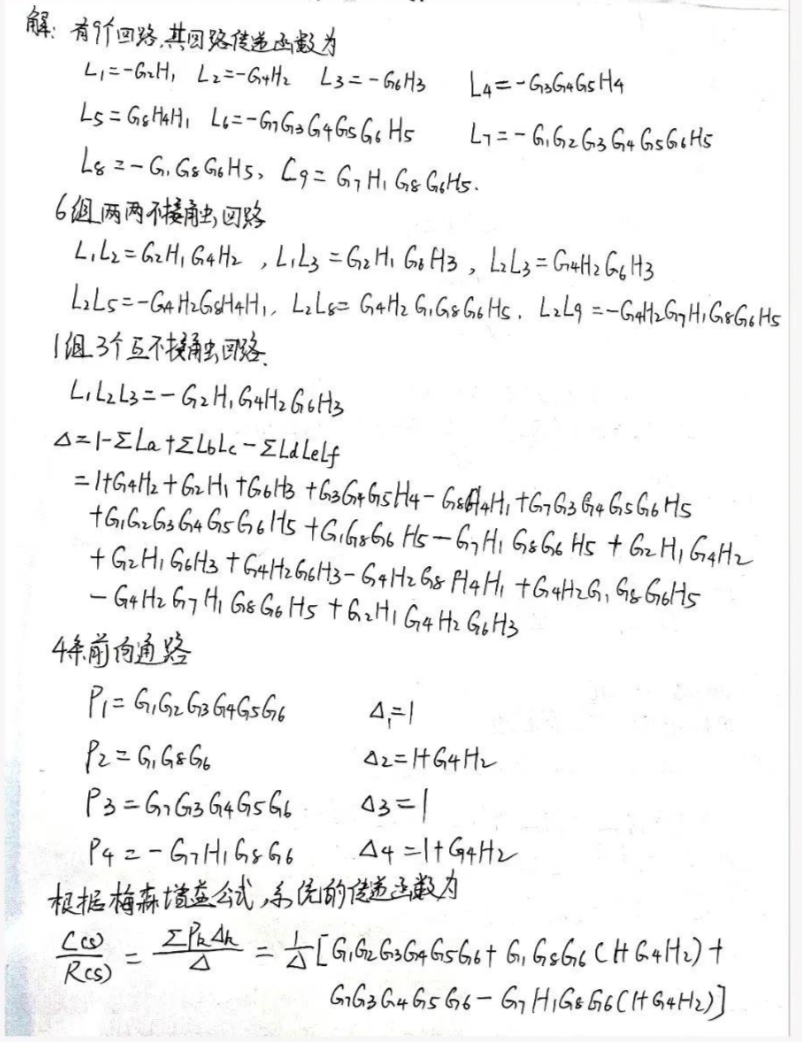 解: 有9个回路,其回路传递函数为
L₁=-G₂H₁ L₂=-G₄H₂ L₃=-G₆H₃ L₄=-G₃G₄G₅H₄
L₅=G₈H₄H₁ L₆=-G₇G₃G₄G₅G₆H₅ L₇=-G₁G₂G₃G₄G₅G₆H₅
L₈=-G₁G₈G₆H₅, L₉=G₇H₁G₈G₆H₅.
6组两两不接触回路
L₁L₂=G₂H₁G₄H₂, L₁L₃=G₂H₁G₆H₃, L₂L₃=G₄H₂G₆H₃
L₂L₅=-G₄H₂G₈H₄H₁, L₂L₈=G₄H₂G₁G₈G₆H₅, L₂L₉=-G₄H₂G₇H₁G₈G₆H₅
1组3个互不接触回路.
L₁L₂L₃=-G₂H₁G₄H₂G₆H₃
Δ=1-ΣLa+ΣLbLc-ΣLdLeLf
=1+G₄H₂+G₂H₁+G₆H₃+G₃G₄G₅H₄-G₈H₄H₁+G₇G₃G₄G₅G₆H₅
+G₁G₂G₃G₄G₅G₆H₅+G₁G₈G₆H₅-G₇H₁G₈G₆H₅+G₂H₁G₄H₂
+G₂H₁G₆H₃+G₄H₂G₆H₃-G₄H₂G₈H₄H₁+G₄H₂G₁G₈G₆H₅
-G₄H₂G₇H₁G₈G₆H₅+G₂H₁G₄H₂G₆H₃
4条前向通路
P₁=G₁G₂G₃G₄G₅G₆ Δ₁=1
P₂=G₁G₈G₆ Δ₂=1+G₄H₂
P₃=G₇G₃G₄G₅G₆ Δ₃=1
P₄=-G₇H₁G₈G₆ Δ₄=1+G₄H₂
根据梅森增益公式,系统的传递函数为
C(s)/R(s) = ΣPₖΔₖ/Δ = 1/Δ[G₁G₂G₃G₄G₅G₆+G₁G₈G₆(1+G₄H₂)+
G₇G₃G₄G₅G₆-G₇H₁G₈G₆(1+G₄H₂)]